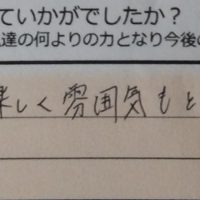 ていかがでしたか？
達の何よりの力となり今後の
楽しく雰囲気もと